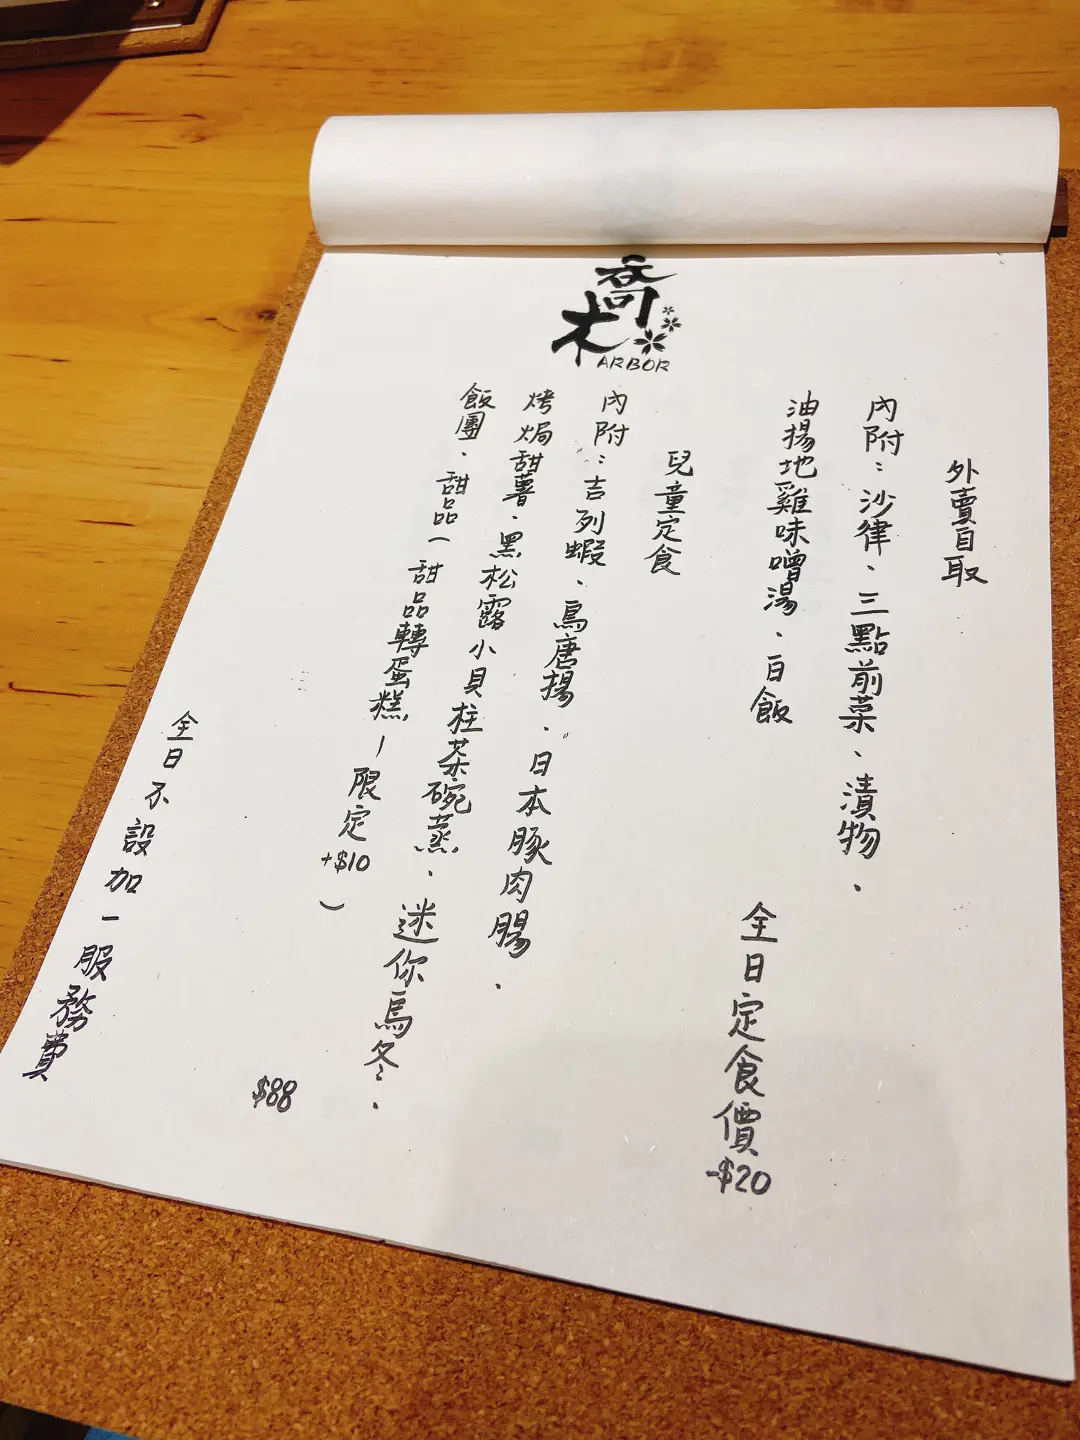 喬木
ARBOR
外賣自取
內附：沙律、三點前菜、漬物、
油揚地雞味噌湯、白飯
全日定食價
-$20
兒童定食
內附：吉列蝦、鳥唐揚、日本豚肉腸、
烤焗甜薯、黑松露小貝柱茶碗蒸、迷你烏冬、
飯團、甜品（甜品轉蛋糕－限定+$10）
$88
全日不設加一服務費